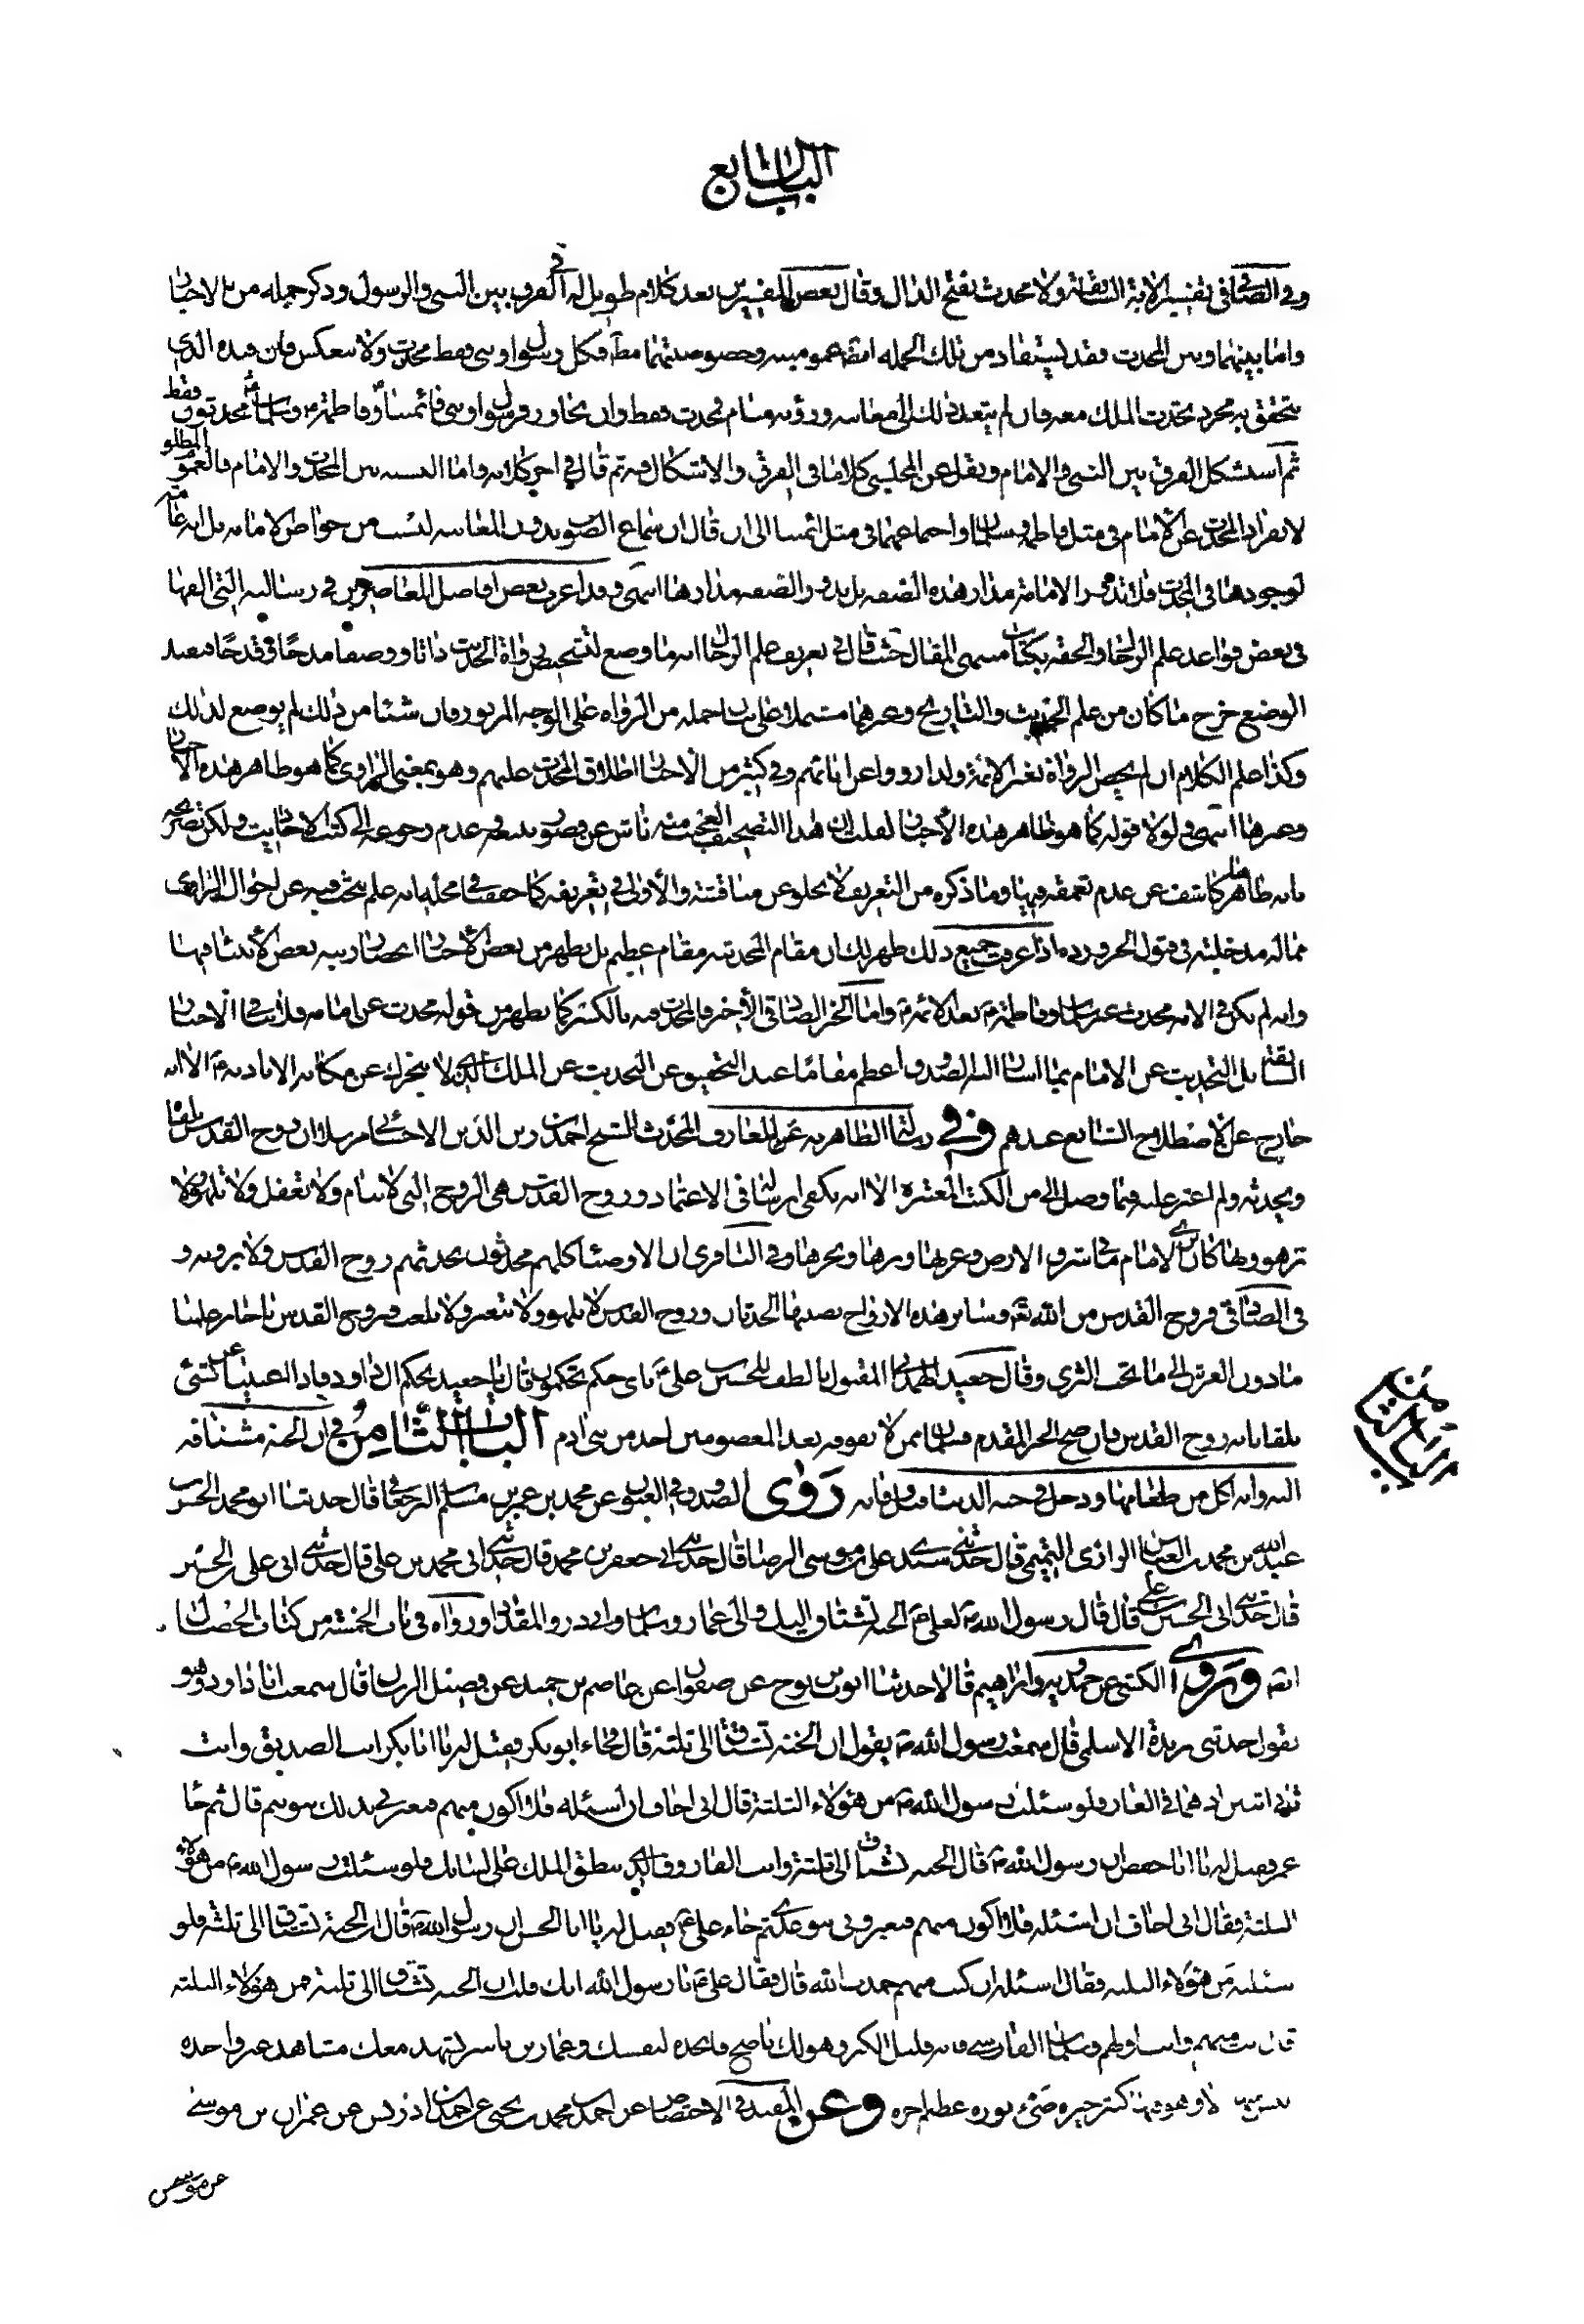 الباب السابع
وفي الصافي في تفسير الاية السابقة ولا محدث بفتح الدال وقال بعض المفسرين بعد كلام طويل له في الفرق بين النبي والرسول وذكر جملة من الاخبار
واما بينهما وبين المحدث فقد يستفاد من تلك الجملة ايضا عموميته وخصوصيتهما مط فكل رسول او نبي فقط محدث ولا ينعكس فان هذه الذي
يتحقق به مجرد تحديث الملك معه فان لم يتعد ذلك الى معاينة ورؤية منام فمحدث فقط وان تجاوز فرسول او نبي فائمتنا وفاطمة وسلمان محدثون فقط
ثم استشكل الفرق بين النبي والامام ونقل عن المجلسي كلاما في الفرق والاشكال فيه ثم قال في اخر كلامه واما النسبة بين المحدث والامام فالعموم المطلق
لانفراد المحدث عن الامام في مثل فاطمة وسلمان واجتماعهما في مثل ائمتنا الى ان قال ان سماع الصوت بدون المعاينة ليست من خواص الامامة بل انه عامة
لوجودها في المحدث فلا تدور الامامة مدار هذه الصفة بل يدور الصفة مدارها انتهى وقد اغرب بعض افاضل المعاصرين في رسالته التي الفها
في بعض قواعد علم الرجال والحقه بكتابه مسمى المقال حيث قال في تعريف علم الرجال انه ما وضع لتشخيص رواة الحديث ذاتا ووصفا مدحا وقدحا فبقيد
الوضع خرج ما كان من علم الحديث والتاريخ وغيرهما مشتملا على بيان جملة من الرواة على الوجه المزبور فان شيئا من ذلك لم يوضع لذلك
وكذا علم الكلام ان لم يخص الرواة بغير الائمة ولذا رووا عن ابائهم وفي كثير من الاخبار اطلاق المحدث عليهم وهو بمعنى الراوي كما هو ظاهر هذه الاخبار
وغيرها انتهى ولولا قوله كما هو ظاهر هذه الاخبار لقلت ان هذا التصحيف العجيب منه ناش عن قصور تتبعه وعدم رجوعه الى كتب الاحاديث ولكن تصريحه
بانه ظاهرها كاشف عن عدم تعمقه فيها وما ذكره من التعريف لا يخلو عن مناقشة والاولى في تعريفه كما حققت في محله انه علم يبحث فيه عن احوال الراوي
مما له مدخلية في قبول الخبر ورده اذا عرفت جميع ذلك ظهر لك ان مقام المحدثية مقام عظيم بل يظهر من بعض الاخبار انحصار بعض الانبياء فيها
وانه لم يكن في الامة محدث غير سلمان وفاطمة بعد الائمة واما الخبر الصادقي الاخير فالمحدث فيه بالكسر كما يظهر من قوله محدث عن امامه فلا ينافي الاخبار
السابقة بل التحديث عن الامام بما اشار اليه الصدوق اعظم مقاما عند التحقيق عن التحديث عن الملك الذي لا يتحرك عن مكانه الا باذنه الا انه
خارج عن الاصطلاح الشايع عندهم وفي رسالة الظاهرية عن المعارف المحدث الشيخ احمد بن زين الدين الاحسائي مرسلا ان روح القدس يلقاه
ويحدثه ولم اعثر عليه فيما وصل الي من الكتب المعتبرة الا انه يكفي ارساله في الاعتماد وروح القدس هي الروح التي لا تنام ولا تغفل ولا تلهو ولا
تزهو وبها كان يرى الامام ما في شرق الارض وغربها وبرها وبحرها وفي الباقري ان الاوصياء كلهم محدثون يحدثهم روح القدس ولا يرونه و
في الصادقي فروح القدس من الله تعالى وساير هذه الارواح يصيبها الحدثان وروح القدس لا يلهو ولا يتغير ولا يلعب وبروح القدس يا جابر علمنا
ما دون العرش الى ما تحت الثرى وقال جعيد الهمداني المقتول بالطف للحسين عليه باي حكم تحكمون قال يا جعيد بحكم ال داود فاذا عيينا عن شيء
تلقانا به روح القدس فان صح الخبر المقدم فسلمان ممن لا يفوقه بعد المعصومين احد من بني ادم الباب الثامن في ان الجنة مشتاقة
اليه وانه اكل من طعامها ودخل في جنة الدنيا قبل وفاته روى الصدوق في العيون عن محمد بن عمر بن مسلم الجعابي قال حدثنا ابو محمد الحسن بن
عبد الله بن محمد بن العباس الرازي التميمي قال حدثني سيدي علي بن موسى الرضا قال حدثني ابي جعفر بن محمد قال حدثني ابي محمد بن علي قال حدثني ابي علي بن الحسين
قال حدثني ابي الحسين بن علي قال قال رسول الله لعلي الجنة تشتاق اليك والى عمار وسلمان وابي ذر والمقداد ورواه في باب الخمسة من كتاب الخصال
ايضا وروى الكشي عن حمدويه وابراهيم قالا حدثنا ايوب بن نوح عن صفوان عن عاصم بن حميد عن فضيل الرسان قال سمعت ابا داود وهو
يقول حدثني بريدة الاسلمي قال سمعت رسول الله يقول ان الجنة تشتاق الى ثلثة قال فجاء ابو بكر فقيل له يا ابا بكر انت الصديق وانت
ثاني اثنين اذ هما في الغار فلو سئلت رسول الله من هؤلاء الثلثة قال اني اخاف ان اسئله فلا اكون منهم فيعيرني بذلك بنو تيم قال ثم جاء
عمر فقيل له يا ابا حفص ان رسول الله قال الجنة تشتاق الى ثلثة وانت الفاروق الذي ينطق الملك على لسانك فلو سئلت رسول الله من هؤلاء
الثلثة فقال اني اخاف ان اسئله فلا اكون منهم فيعيرني بنو عدي ثم جاء علي فقيل له يا ابا الحسن ان رسول الله قال ان الجنة تشتاق الى ثلثة فلو
سئلته من هؤلاء الثلثة فقال اسئله ان كنت منهم حمدت الله قال فقال علي يا رسول الله انك قلت ان الجنة تشتاق الى ثلثة فمن هؤلاء الثلثة
قال انت منهم وانت اولهم وسلمان الفارسي فانه قليل الكبر وهو لك ناصح فاتخذه لنفسك وعمار بن ياسر يشهد معك مشاهد غير واحدة
ليس منها الا وهو فيها كثير خيره ضيء نوره عظيم اجره وعن المفيد في الاختصاص عن احمد بن محمد بن يحيى عن احمد بن ادريس عن عمران بن موسى
عن موسى
الباب الثامن